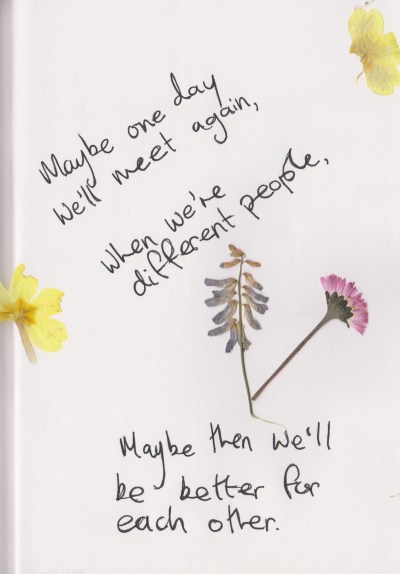 Maybe one day
We'll meet again,
When we're
different people,
Maybe then We'll
be better for
each other.